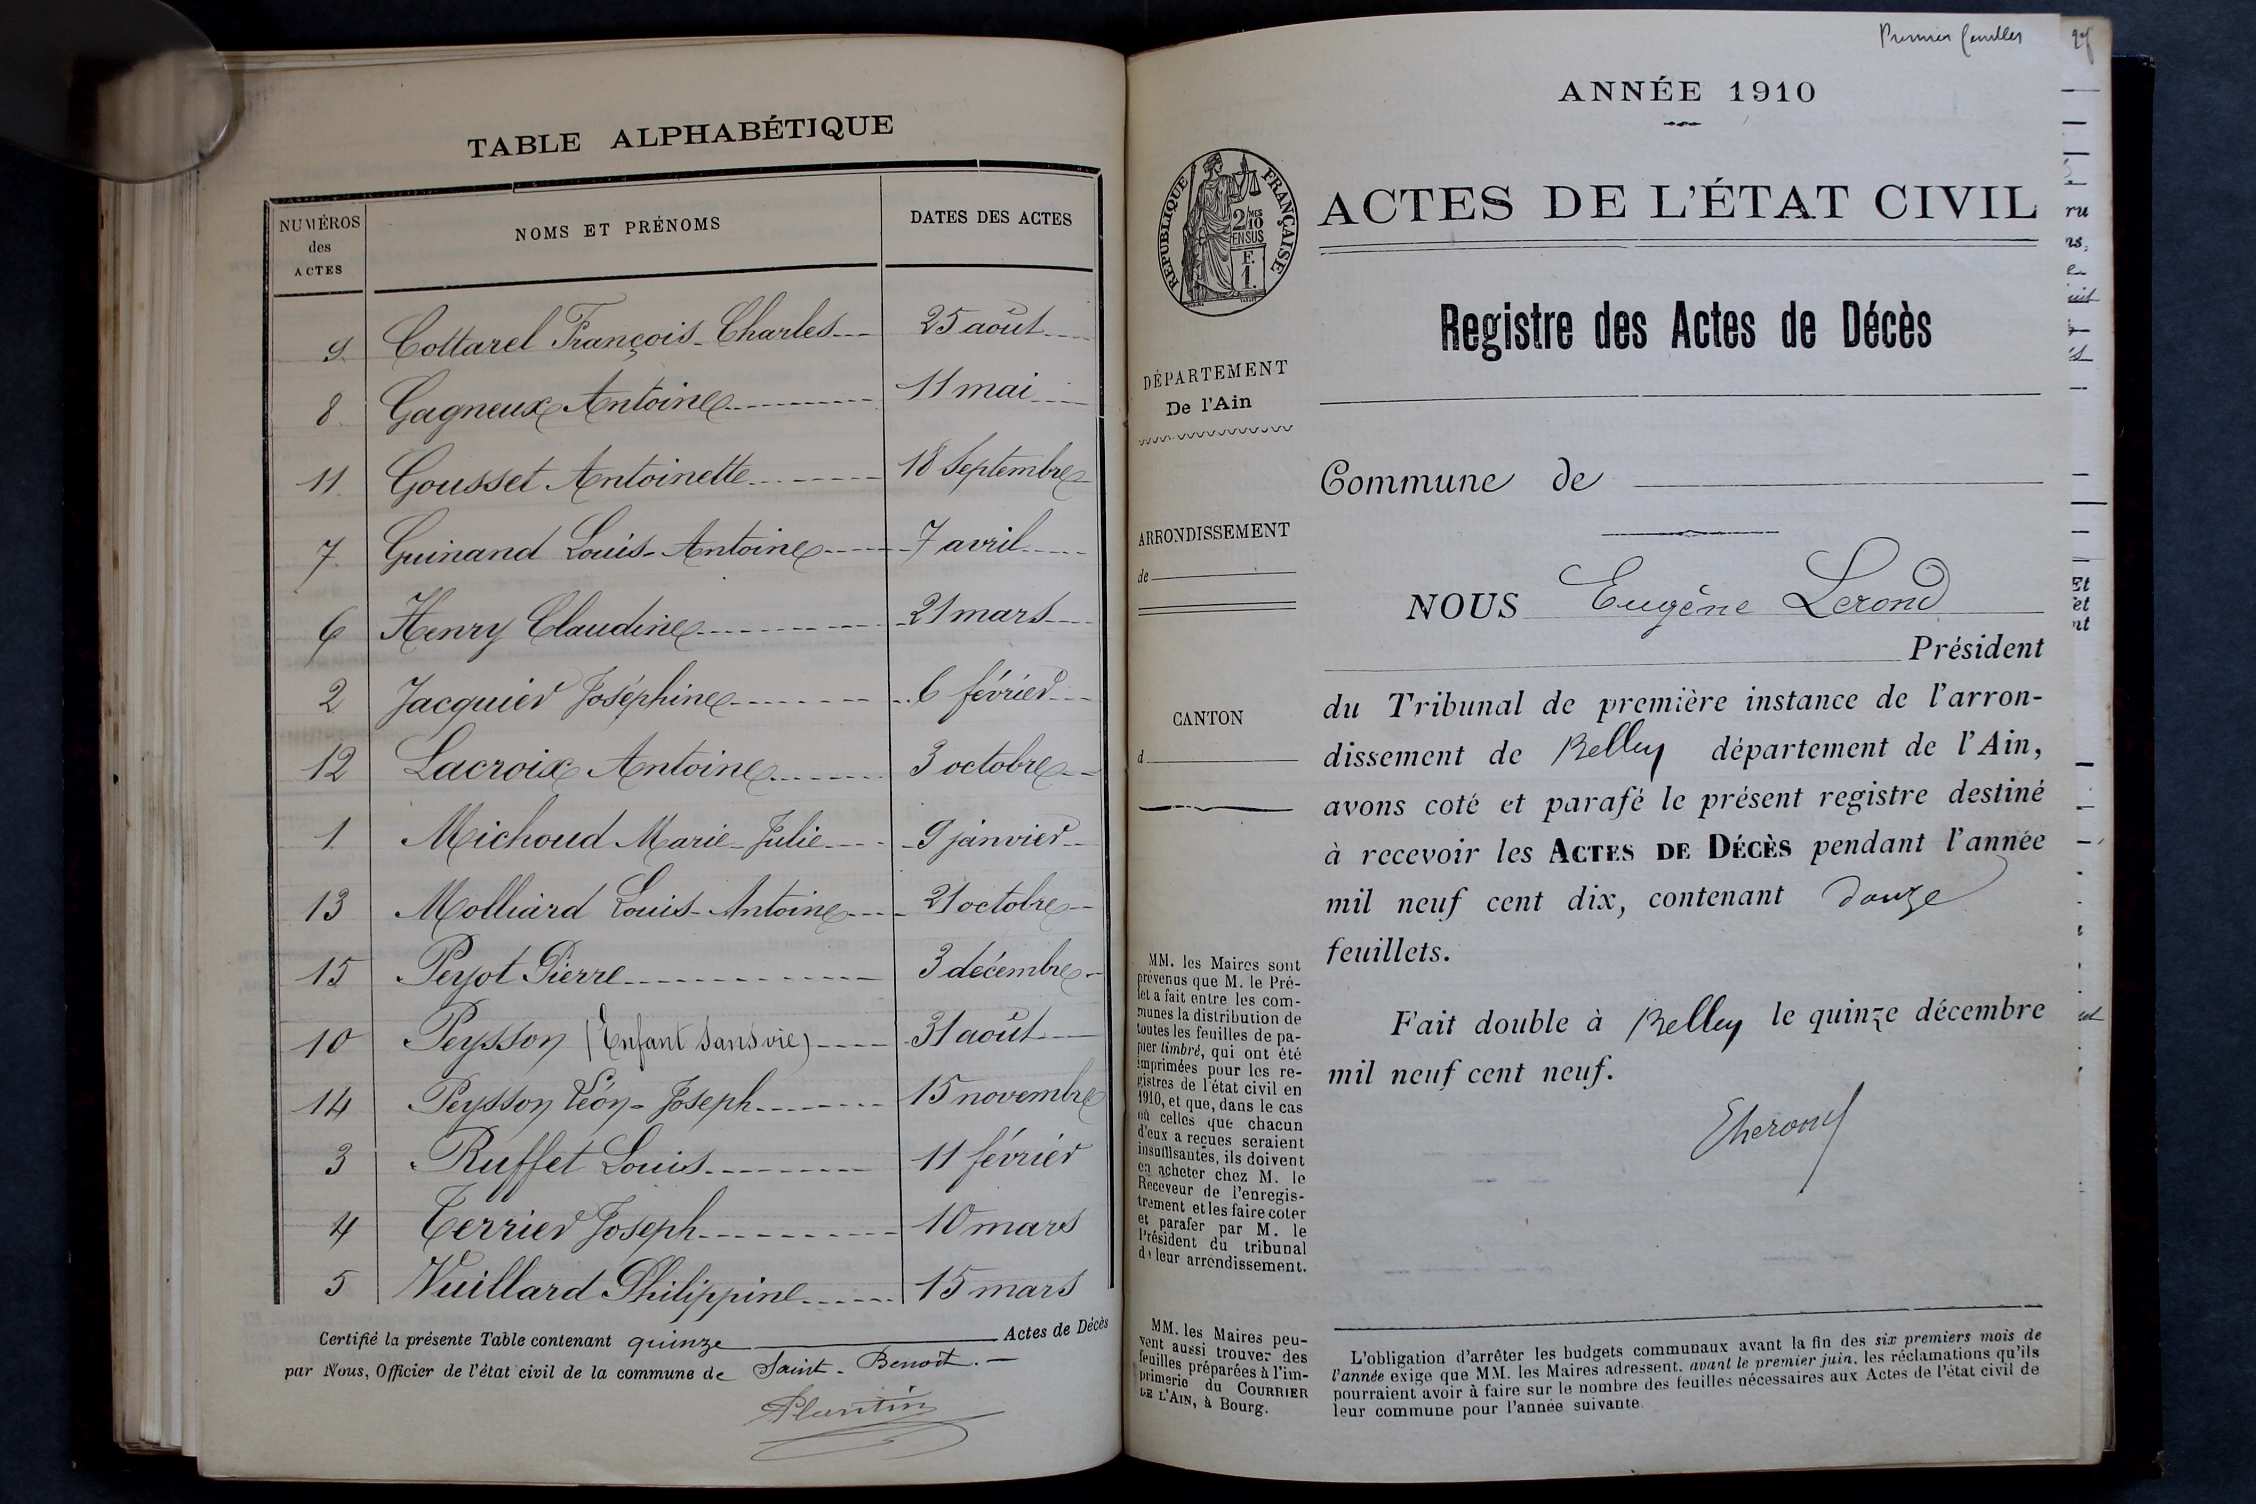 TABLE ALPHABÉTIQUE
NUMÉROS des ACTES NOMS ET PRÉNOMS DATES DES ACTES
9 Cottarel François-Charles 25 août
8 Gagneux Antoine 11 mai
11 Gousset Antoinette 18 Septembre
7 Guinand Louis-Antoine 7 avril
6 Henry Claudine 21 mars
2 Jacquier Joséphine 6 février
12 Lacroix Antoine 3 octobre
1 Michoud Marie-Julie 9 janvier
13 Molliard Louis-Antoine 21 octobre
15 Peyot Pierre 3 décembre
10 Peysson (Enfant sans vie) 31 août
14 Peysson Léon-Joseph 15 novembre
3 Ruffet Louis 11 février
4 Terrier Joseph 10 mars
5 Vuillard Philippine 15 mars
Certifié la présente Table contenant quinze Actes de Décès
par Nous, Officier de l'état civil de la commune de Saint-Benoît.
Plantin
Premier feuillet
ANNÉE 1910
RÉPUBLIQUE FRANÇAISE
2/10 MES
EN SUS
F.
1.
ACTES DE L'ÉTAT CIVIL
Registre des Actes de Décès
DÉPARTEMENT
De l'Ain
ARRONDISSEMENT
de
CANTON
d
MM. les Maires sont
prévenus que M. le Pré-
fet a fait entre les com-
munes la distribution de
toutes les feuilles de pa-
pier timbré, qui ont été
imprimées pour les re-
gistres de l'état civil en
1910, et que, dans le cas
où celles que chacun
d'eux a reçues seraient
insuffisantes, ils doivent
en acheter chez M. le
Receveur de l'enregis-
trement et les faire coter
et parafer par M. le
Président du tribunal
de leur arrondissement.
MM. les Maires peu-
vent aussi trouver des
feuilles préparées à l'im-
primerie du COURRIER
DE L'AIN, à Bourg.
Commune de
NOUS Eugène Lerond
Président
du Tribunal de première instance de l'arron-
dissement de Belley département de l'Ain,
avons coté et parafé le présent registre destiné
à recevoir les ACTES DE DÉCÈS pendant l'année
mil neuf cent dix, contenant douze
feuillets.
Fait double à Belley le quinze décembre
mil neuf cent neuf.
L'obligation d'arrêter les budgets communaux avant la fin des six premiers mois de
l'année exige que MM. les Maires adressent, avant le premier juin, les réclamations qu'ils
pourraient avoir à faire sur le nombre des feuilles nécessaires aux Actes de l'état civil de
leur commune pour l'année suivante.